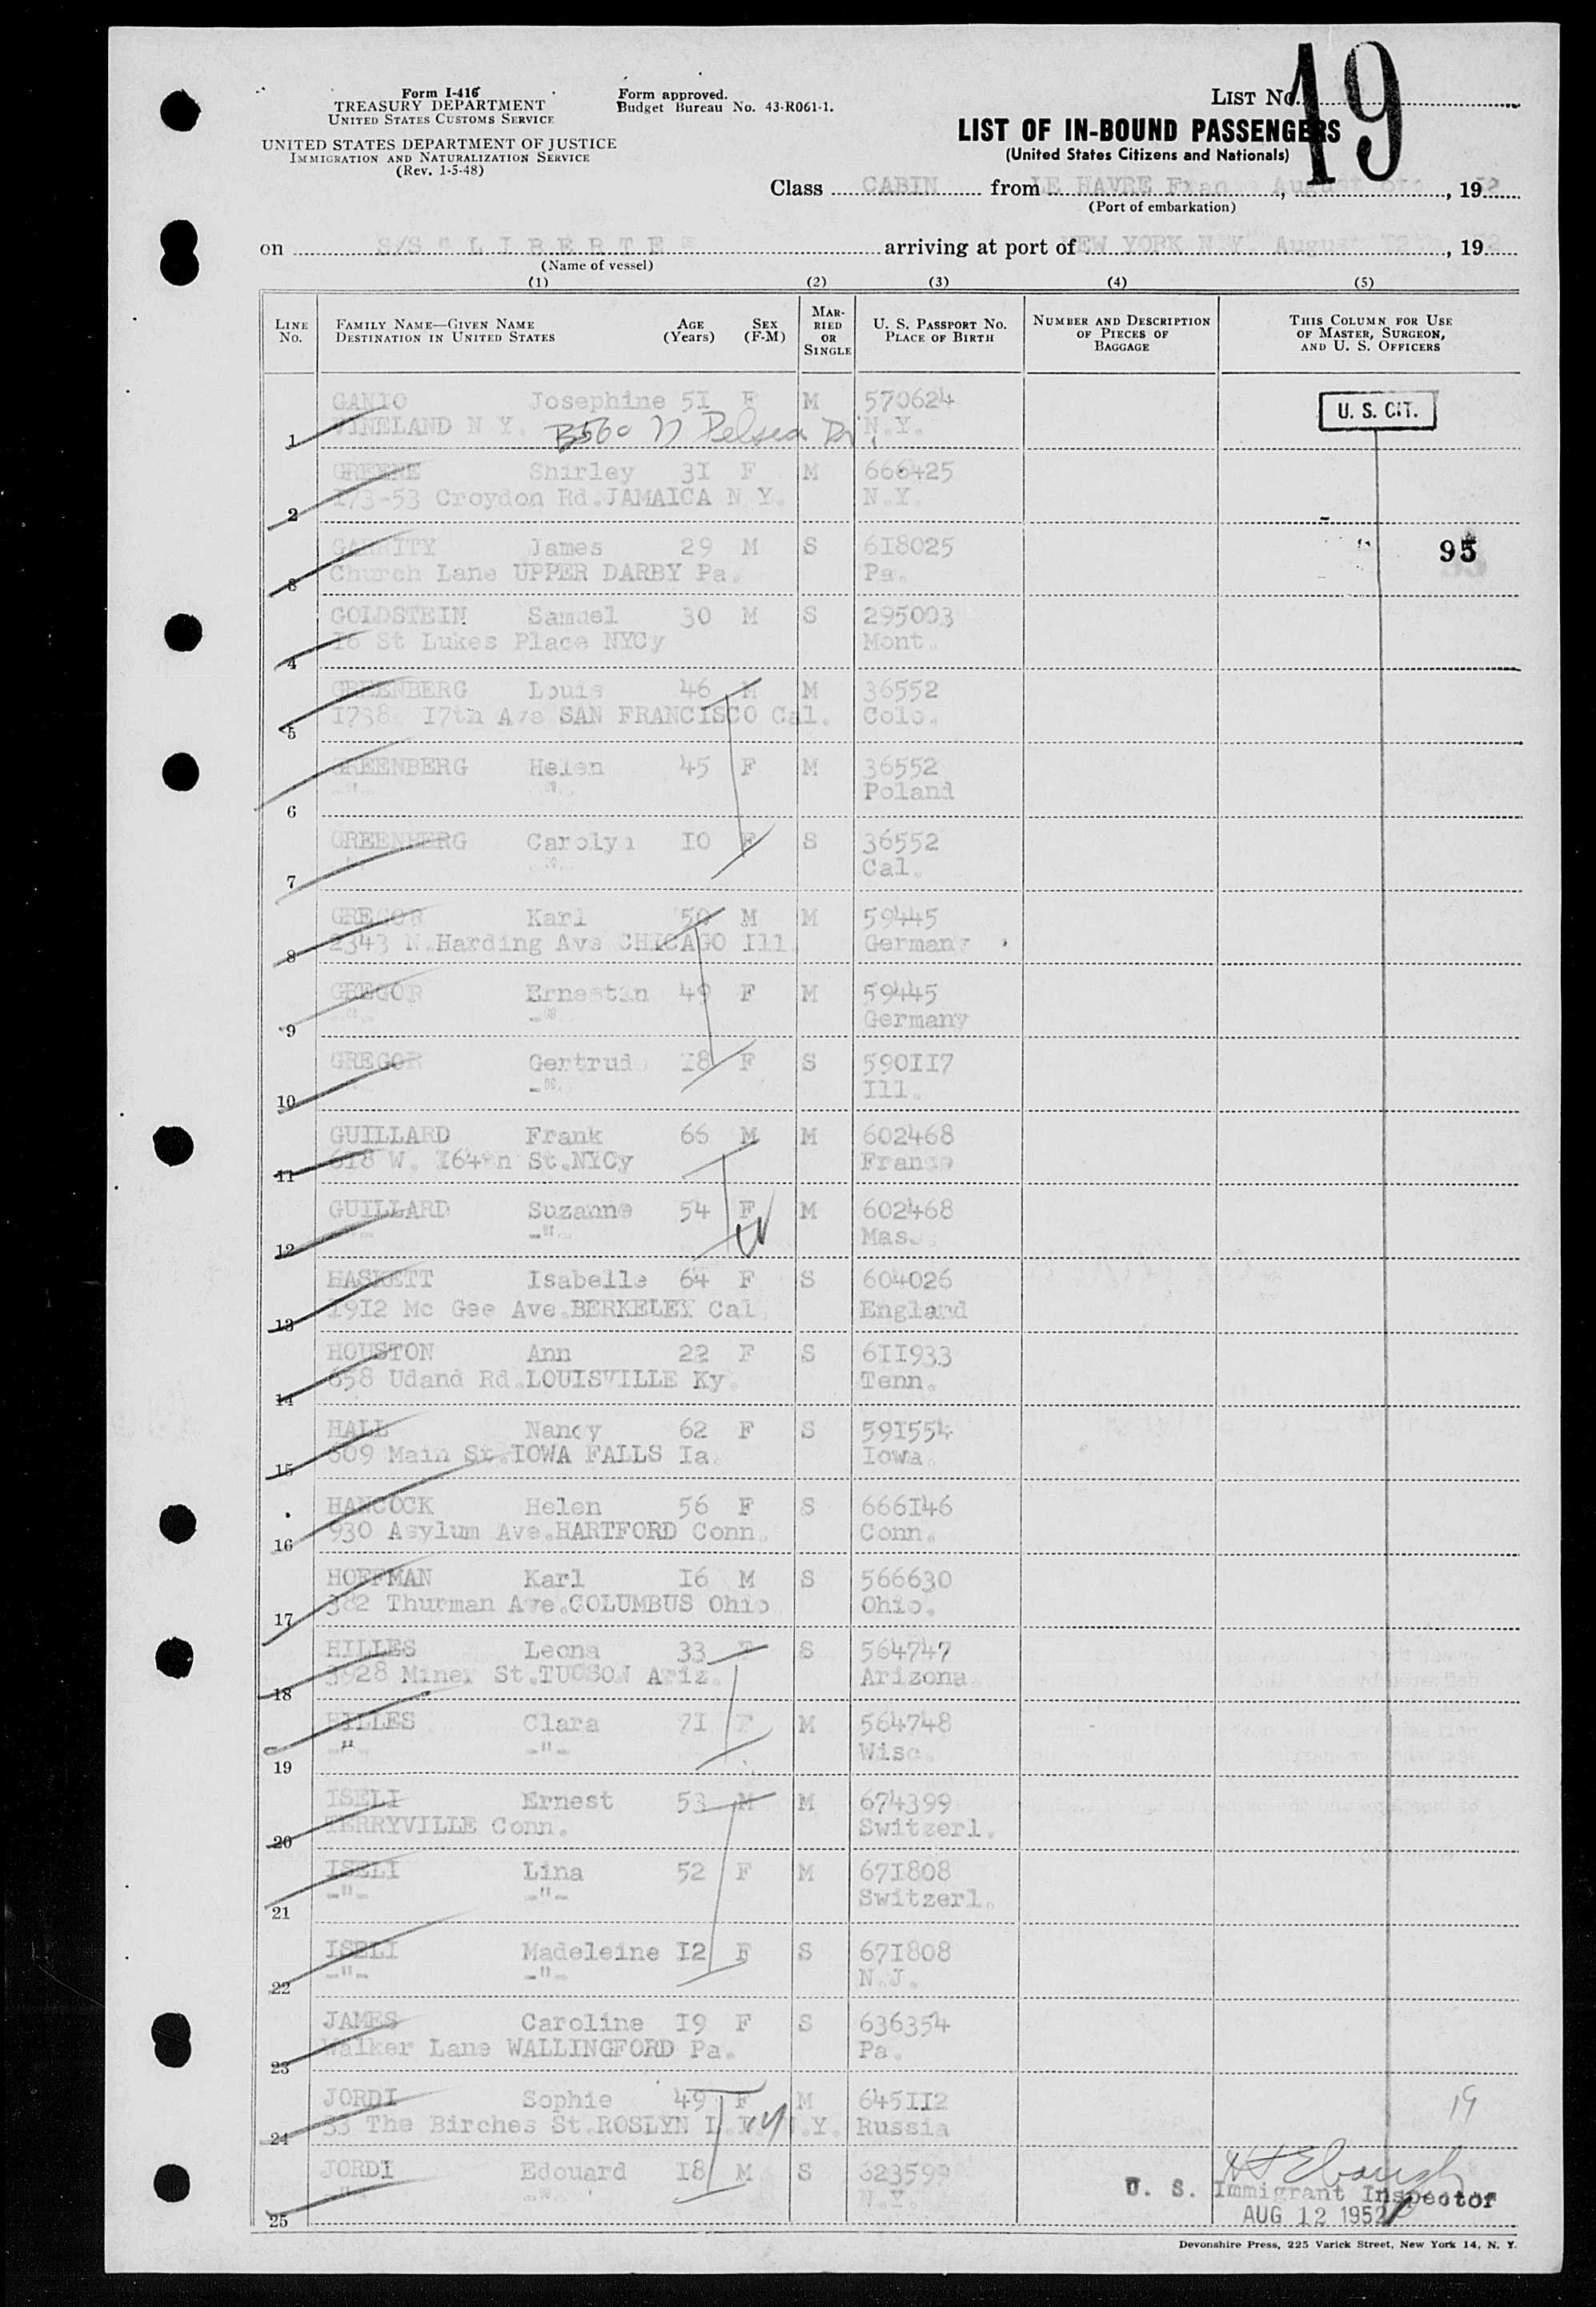 Form I-416
TREASURY DEPARTMENT
UNITED STATES CUSTOMS SERVICE
UNITED STATES DEPARTMENT OF JUSTICE
IMMIGRATION AND NATURALIZATION SERVICE
(Rev. 1-5-48)
Form approved.
Budget Bureau No. 43-R061-1.
LIST No. 19
LIST OF IN-BOUND PASSENGERS
(United States Citizens and Nationals)
Class CABIN from LE HAVRE France, August, 1952
(Port of embarkation)
on S/S " L I B E R T E " arriving at port of NEW YORK N.Y. August 12, 1952
(Name of vessel)
(1) (2) (3) (4) (5)
LINE No. FAMILY NAME—GIVEN NAME DESTINATION IN UNITED STATES AGE (Years) SEX (F-M) MARRIED OR SINGLE U. S. PASSPORT No. PLACE OF BIRTH NUMBER AND DESCRIPTION OF PIECES OF BAGGAGE THIS COLUMN FOR USE OF MASTER, SURGEON, AND U. S. OFFICERS
GANIO Josephine 51 F M 570624 U. S. CIT.
1 VINELAND N Y. 560 N Delsea Dr. N.Y.
GREENE Shirley 31 F M 666425
2 173-53 Croydon Rd.JAMAICA N Y. N.Y.
GARRITY James 29 M S 618025 95
3 Church Lane UPPER DARBY Pa. Pa.
GOLDSTEIN Samuel 30 M S 295003
4 16 St Lukes Place NYCy Mont.
GREENBERG Louis 46 M M 36552
5 1738 17th Ave SAN FRANCISCO Cal. Colo.
GREENBERG Helen 45 F M 36552
6 -"- -"- Poland
GREENBERG Carolyn 10 F S 36552
7 -"- -"- Cal.
GREGOR Karl 50 M M 59445
8 2343 N.Harding Ave CHICAGO Ill. Germany
GREGOR Ernestin 49 F M 59445
9 -"- -"- Germany
GREGOR Gertrud 18 F S 590117
10 -"- Ill.
GUILLARD Frank 66 M M 602468
11 618 W. 164th St.NYCy France
GUILLARD Suzanne 54 F M 602468
12 -"- -"- Mass
HASKETT Isabelle 64 F S 604026
13 1912 Mc Gee Ave.BERKELEY Cal. England
HOUSTON Ann 22 F S 611933
14 658 Udand Rd.LOUISVILLE Ky. Tenn.
HALL Nancy 62 F S 591554
15 809 Main St.IOWA FALLS Ia. Iowa
HANCOCK Helen 56 F S 666146
16 930 Asylum Ave.HARTFORD Conn. Conn.
HOFFMAN Karl 16 M S 566630
17 382 Thurman Ave.COLUMBUS Ohio Ohio.
HILLES Leona 33 F S 564747
18 3928 Miner St.TUCSON Ariz. Arizona
HILLES Clara 71 F M 564748
19 -"- -"- Wisc.
ISELI Ernest 53 M M 674399
20 TERRYVILLE Conn. Switzerl.
ISELI Lina 52 F M 671808
21 -"- -"- Switzerl.
ISELI Madeleine 12 F S 671808
22 -"- -"- N.J.
JAMES Caroline 19 F S 636354
23 Walker Lane WALLINGFORD Pa. Pa.
JORDI Sophie 49 F M 645112 19
24 33 The Birches St.ROSLYN L.I. N.Y. Russia
JORDI Edouard 18 M S 623599
25 -"- -"- N.Y.
U. S. Immigrant Inspector
AUG 12 1952
Devonshire Press, 225 Varick Street, New York 14, N. Y.